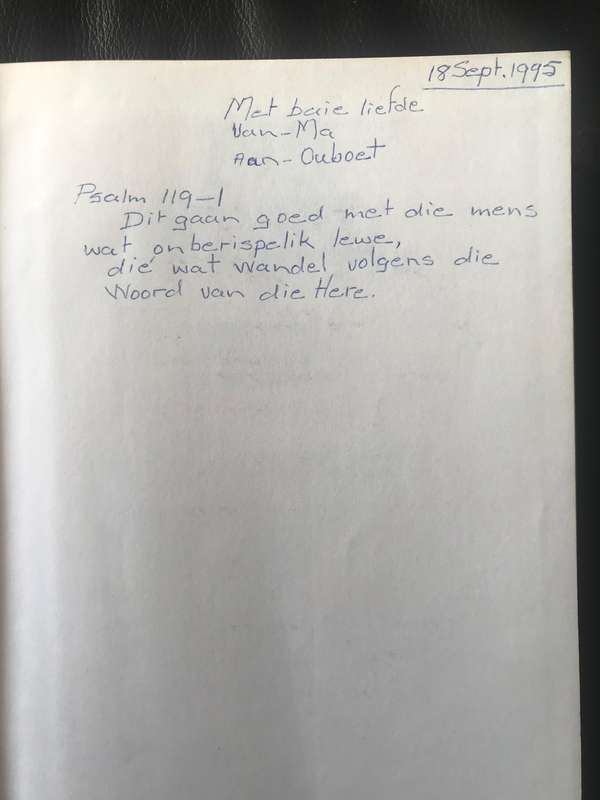 18 Sept. 1995
Met baie liefde
Van-Ma
Aan-Ouboet
Psalm 119-1
Dit gaan goed met die mens
wat onberispelik lewe,
dié wat wandel volgens die
Woord van die Here.